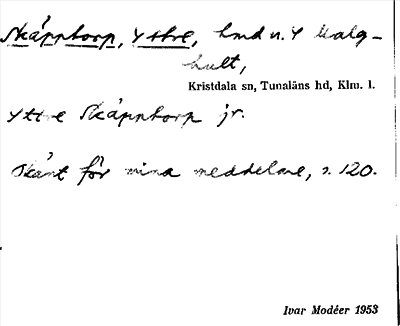 Skäpptorp, Yttre, hmd u. Y Malg-
hult,
Kristdala sn, Tunaläns hd, Klm. l.
Yttre Skäpptorp jr.
Okänt för mina meddelare, s. 120.
Ivar Modéer 1953